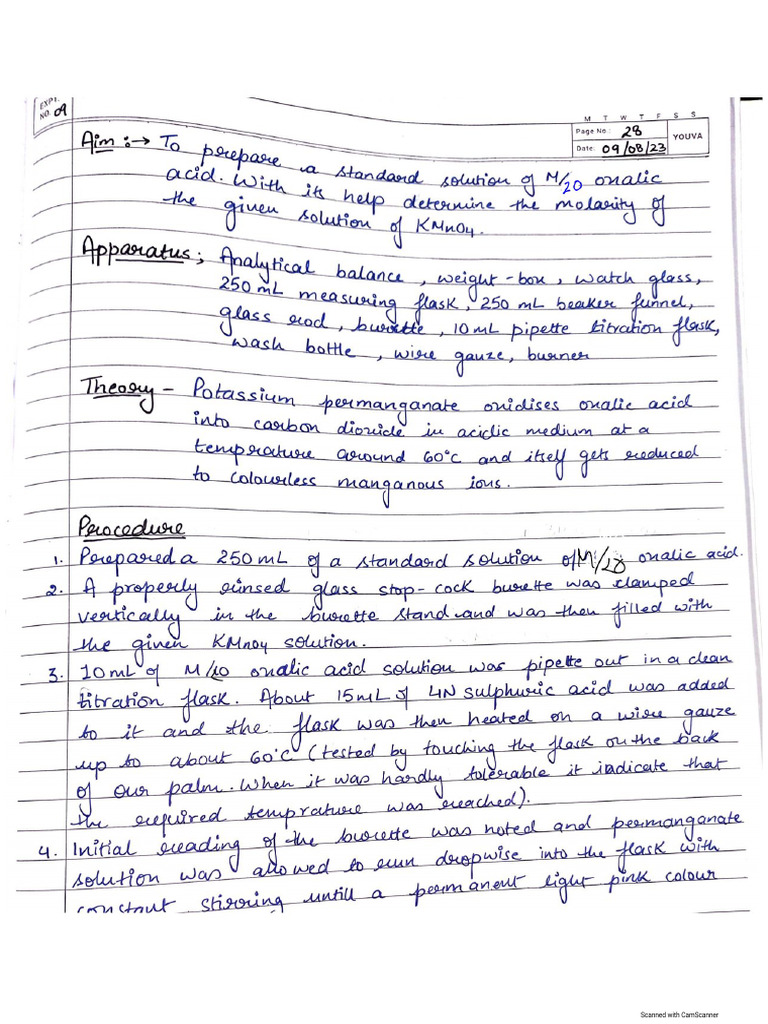 EXPT. NO. 09
M T W T F S S
Page No.: 28
YOUVA
Date: 09/08/23
Aim :→ To prepare a standard solution of M/20 oxalic
acid. With its help determine the molarity of
the given solution of KMnO4.
Apparatus; Analytical balance, weight-box, watch glass,
250 mL measuring flask, 250 mL beaker funnel,
glass rod, burette, 10 mL pipette titration flask,
wash bottle, wire gauze, burner
Theory - Potassium permanganate oxidises oxalic acid
into carbon dioxide in acidic medium at a
temprature around 60°C and itself gets reduced
to colourless manganous ions.
Procedure
1. Prepared a 250 mL of a standard solution of M/20 oxalic acid.
2. A properly rinsed glass stop-cock burette was clamped
vertically in the burette stand and was then filled with
the given KMnO4 solution.
3. 10 mL of M/20 oxalic acid solution was pipette out in a clean
titration flask. About 15 mL of 4N sulphuric acid was added
to it and the flask was then heated on a wire gauze
up to about 60°C (tested by touching the flask on the back
of our palm. When it was hardly tolerable it indicate that
the required temprature was reached).
4. Initial reading of the burette was noted and permanganate
solution was allowed to run dropwise into the flask with
constant stirring untill a permanent light pink colour
Scanned with CamScanner